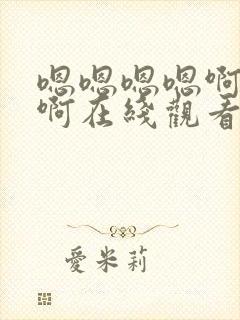 嗯嗯嗯嗯啊
啊在綫觀看
愛米莉